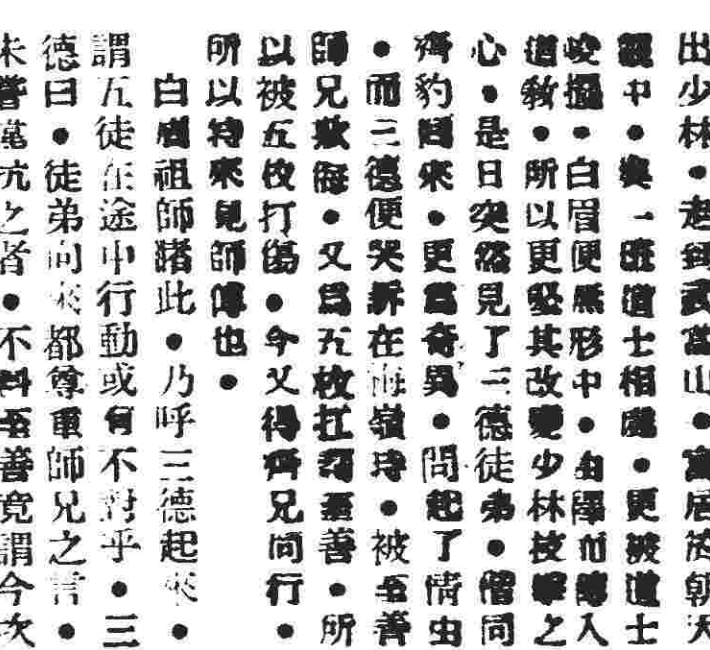 出少林●走到武當山●寓居於朝天
觀中●與一班道士相處●更被道士
峻攝●白眉便無形中●由陽而轉入
道教●所以更堅其改變少林技擊之
心●是日突然見了三德徒弟●偕同
齊豹回來●更爲奇異●問起了情由
●而三德便哭訴在梅嶺時●被至善
師兄欺侮●又爲五枚打●至善●所
以被五枚打傷●今又得齊兄同行●
所以特來見師傅也●
白眉祖師睹此●乃呼三德起來●
謂五徒在途中行動或有不對乎●三
德曰●徒弟向來都尊重師兄之言●
未嘗違抗之者●不料至善竟謂今次